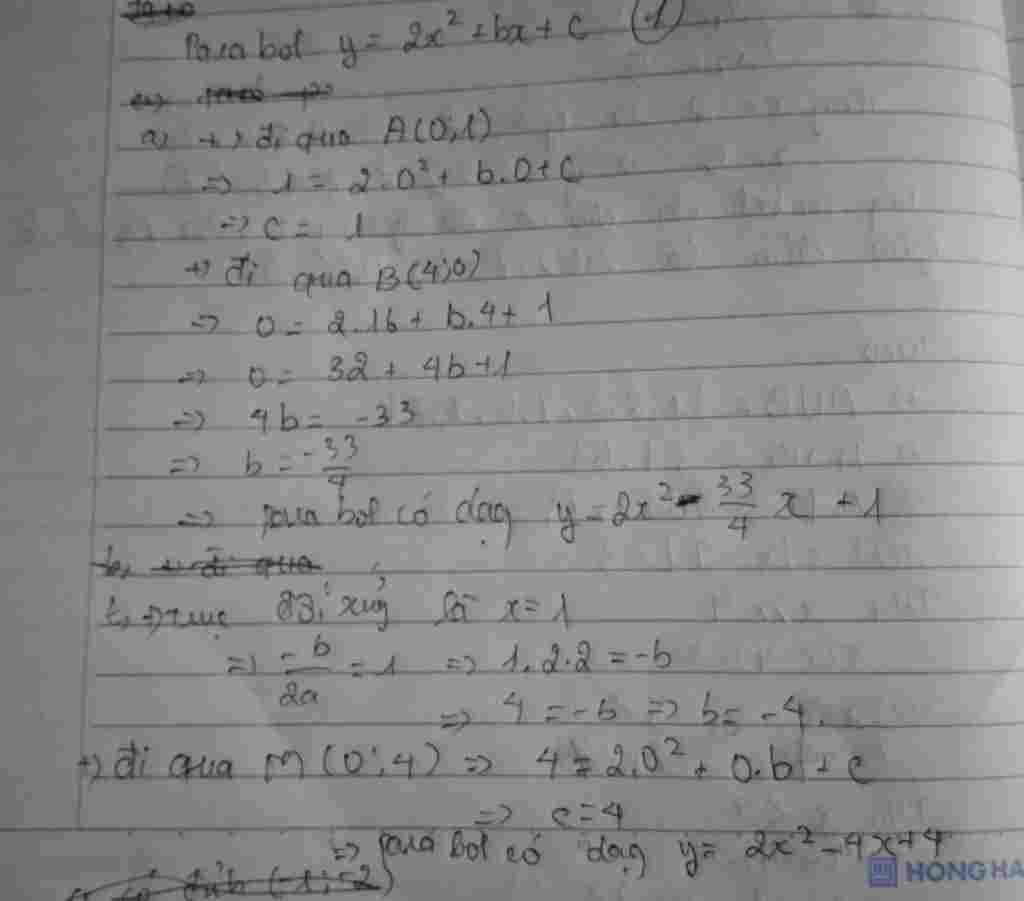 Parabol y = 2x² + bx + c (1)
a) +) đi qua A(0;1)
=> 1 = 2.0² + b.0 + c
=> c = 1
+) đi qua B(4;0)
=> 0 = 2.16 + b.4 + 1
=> 0 = 32 + 4b + 1
=> 4b = -33
=> b = -33/4
=> parabol có dạg y = 2x² - 33/4 x + 1
+) trục đối xứg là x = 1
=> -b/2a = 1 => 1.2.2 = -b
=> 4 = -b => b = -4.
+) đi qua M(0;4) => 4 = 2.0² + 0.b + c
=> c = 4
=> parabol có dạg y = 2x² - 4x + 4
HONG HA